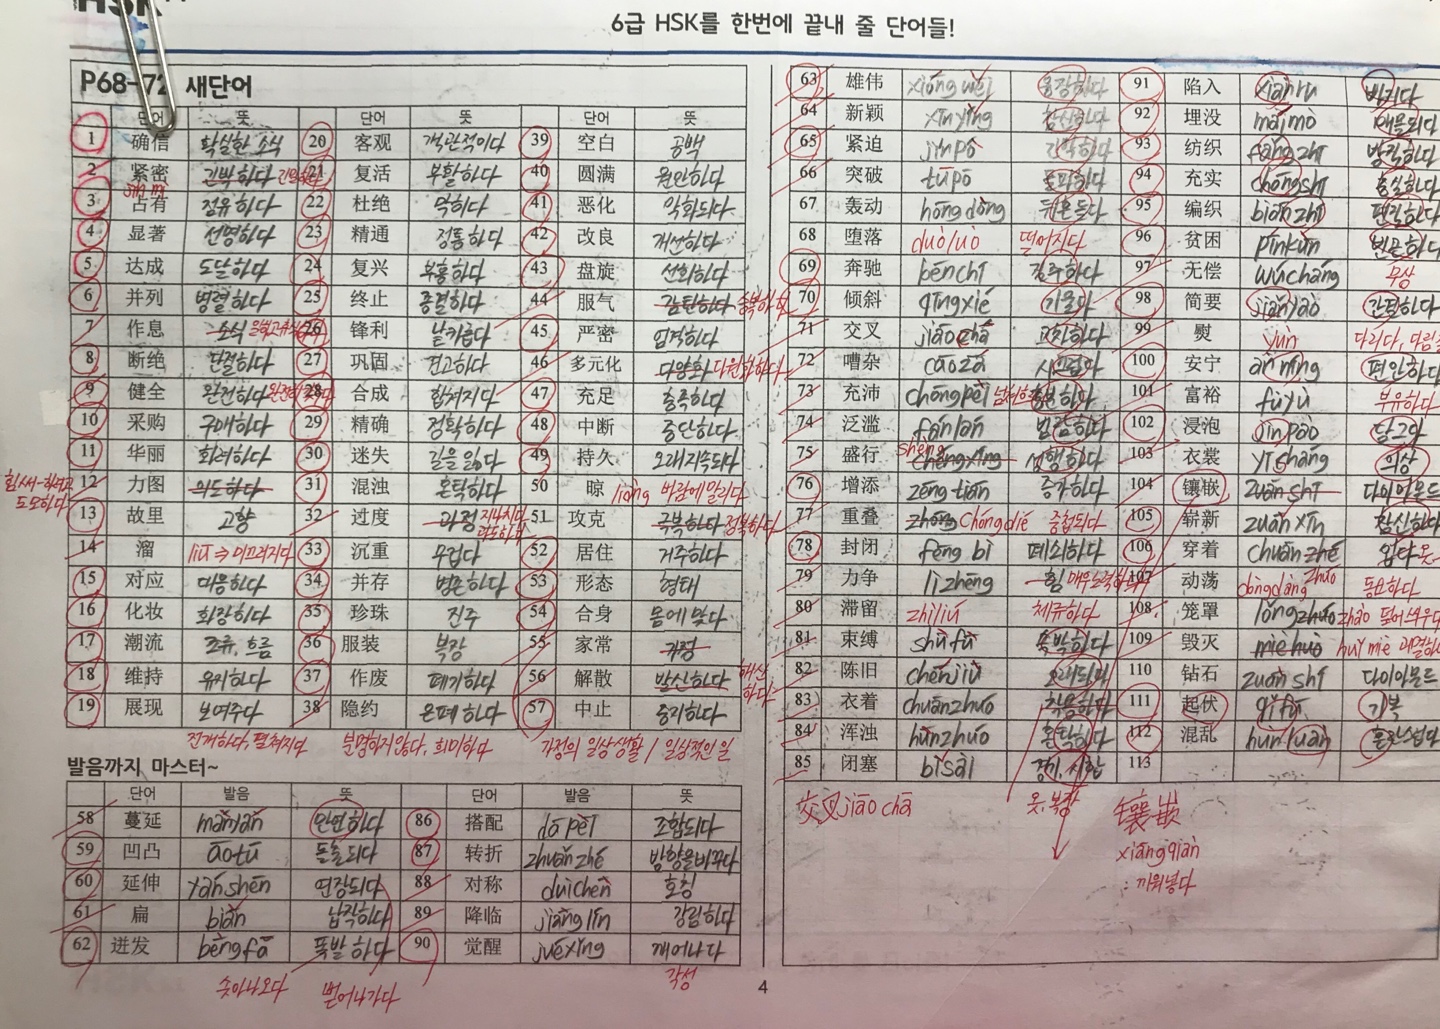 HSK
6급 HSK를 한번에 끝내 줄 단어들!
P68-72 새단어
단어 뜻 단어 뜻 단어 뜻
1 确信 확실한 소식 20 客观 객관적이다 39 空白 공백
2 紧密 긴박하다 21 复活 부활하다 40 圆满 원만하다
3 占有 점유하다 22 杜绝 막히다 41 恶化 악화되다
4 显著 선명하다 23 精通 정통하다 42 改良 개선하다
5 达成 도달하다 24 复兴 부흥하다 43 盘旋 선회하다
6 并列 병렬하다 25 终止 종결하다 44 服气 감탄하다
7 作息 소식 26 锋利 날카롭다 45 严密 엄격하다
8 断绝 단절하다 27 巩固 견고하다 46 多元化 다양화 다원화하다
9 健全 완전하다 28 合成 합쳐지다 47 充足 충족하다
10 采购 구매하다 29 精确 정확하다 48 中断 중단하다
11 华丽 화려하다 30 迷失 길을 잃다 49 持久 오래지속되다
12 力图 의도하다 31 混浊 혼탁하다 50 晾 liàng 바람에 말리다
13 故里 고향 32 过度 과정 지나치다 51 攻克 극복하다 정복하다
14 溜 liū ⇒ 미끄러지다 33 沉重 무겁다 52 居住 거주하다
15 对应 대응하다 34 并存 병존하다 53 形态 형태
16 化妆 화장하다 35 珍珠 진주 54 合身 몸에 맞다
17 潮流 조류, 흐름 36 服装 복장 55 家常 가정
18 维持 유지하다 37 作废 폐기하다 56 解散 발산하다 해산하다
19 展现 보여주다 38 隐约 은폐하다 57 中止 중지하다
전개하다, 펼쳐지다 분명하지 않다, 희미하다 가정의 일상생활 / 일상적인 일
발음까지 마스터~
단어 발음 뜻 단어 발음 뜻
58 蔓延 mànyán 만연하다 86 搭配 dā pèi 조합되다
59 凹凸 āotū 돌출되다 87 转折 zhuǎn zhé 방향을바꾸다
60 延伸 yán shēn 연장되다 88 对称 duì chèn 호칭
61 扁 biǎn 납작하다 89 降临 jiàng lín 강림하다
62 迸发 bèng fā 폭발하다 90 觉醒 jué xǐng 깨어나다
솟아나오다 뻗어나가다 각성
63 雄伟 xióng wěi 웅장하다 91 陷入 xiàn rù 빠지다
64 新颖 xīn yǐng 참신하다 92 埋没 mái mò 매몰되다
65 紧迫 jǐn pò 긴박하다 93 纺织 fǎng zhī 방직하다
66 突破 tū pò 돌파하다 94 充实 chōng shí 충실하다
67 轰动 hōng dòng 뒤흔들다 95 编织 biān zhī 편직하다
68 堕落 duò luò 떨어지다 96 贫困 pín kùn 빈곤하다
69 奔驰 bēn chí 질주하다 97 无偿 wú cháng 무상
70 倾斜 qīng xié 기울다 98 简要 jiǎn yào 간결하다
71 交叉 jiāo chā 교차하다 99 熨 yùn 다리다, 다림
72 嘈杂 cáo zá 시끄럽다 100 安宁 ān níng 편안하다
73 充沛 chōng pèi 101 富裕 fù yù 부유하다
74 泛滥 fàn làn 범람하다 102 浸泡 jìn pào 담그다
75 盛行 chéng xíng shèng 성행하다 103 衣裳 yī shang 의상
76 增添 zēng tiān 증가하다 104 镶嵌 zuàn shí 다이아몬드
77 重叠 zhòng chóng dié 중첩되다 105 崭新 zuǎn xīn 참신하다
78 封闭 fēng bì 폐쇄하다 106 穿着 chuān zhé 입다
79 力争 lì zhēng 힘 매우노력하다 107 动荡 dòng dàng zhuó 동요하다
80 滞留 zhì liú 체류하다 108 笼罩 lǒng zhuó zhào 덮어씌우다
81 束缚 shù fù 속박하다 109 毁灭 miè huò huǐ miè 괴멸하
82 陈旧 chén jiù 오래되다 110 钻石 zuàn shí 다이아몬드
83 衣着 chuān zhuó 착용하다 111 起伏 qǐ fú 기복
84 浑浊 hún zhuó 혼탁하다 112 混乱 hùn luàn 혼란스럽다
85 闭塞 bì sài 113
交叉 jiāo chā 옷, 복장 镶嵌
xiāng qiàn
: 끼워넣다
4